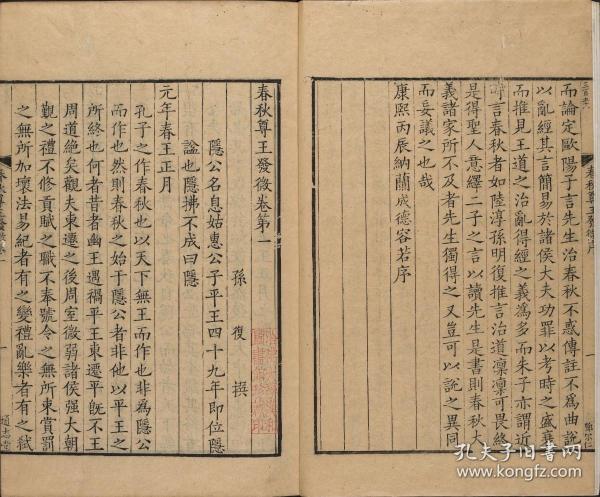 而論定歐陽子言先生治春秋不惑傳註不為曲說
以亂經其言簡易於諸侯大夫功罪以考時之盛衰
而推見王道之治亂得經之義為多而朱子亦謂近
時言春秋者如陸淳孫明復推言治道凜凜可畏終
是得聖人意繹二子之言以讀先生是書則春秋大
義諸家所不及者先生獨得之又豈可以說之異同
而妄議之也哉
康熙丙辰納蘭成德容若序
春秋尊王發微序
一
春秋尊王發微卷第一
孫復撰
隱公名息姑惠公子平王四十九年即位隱
謚也隱拂不成曰隱
元年春王正月
孔子之作春秋也以天下無王而作也非為隱公
而作也然則春秋之始于隱公者非他以平王之
所終也何者昔者幽王遇禍平王東遷平既不王
周道絶矣觀夫東遷之後周室微弱諸侯强大朝
覲之禮不修貢賦之職不奉號令之無所束賞罰
之無所加壞法易紀者有之變禮亂樂者有之弒
春秋尊王發微卷一
一
通志堂
孔夫子旧书网
www.kongfz.com